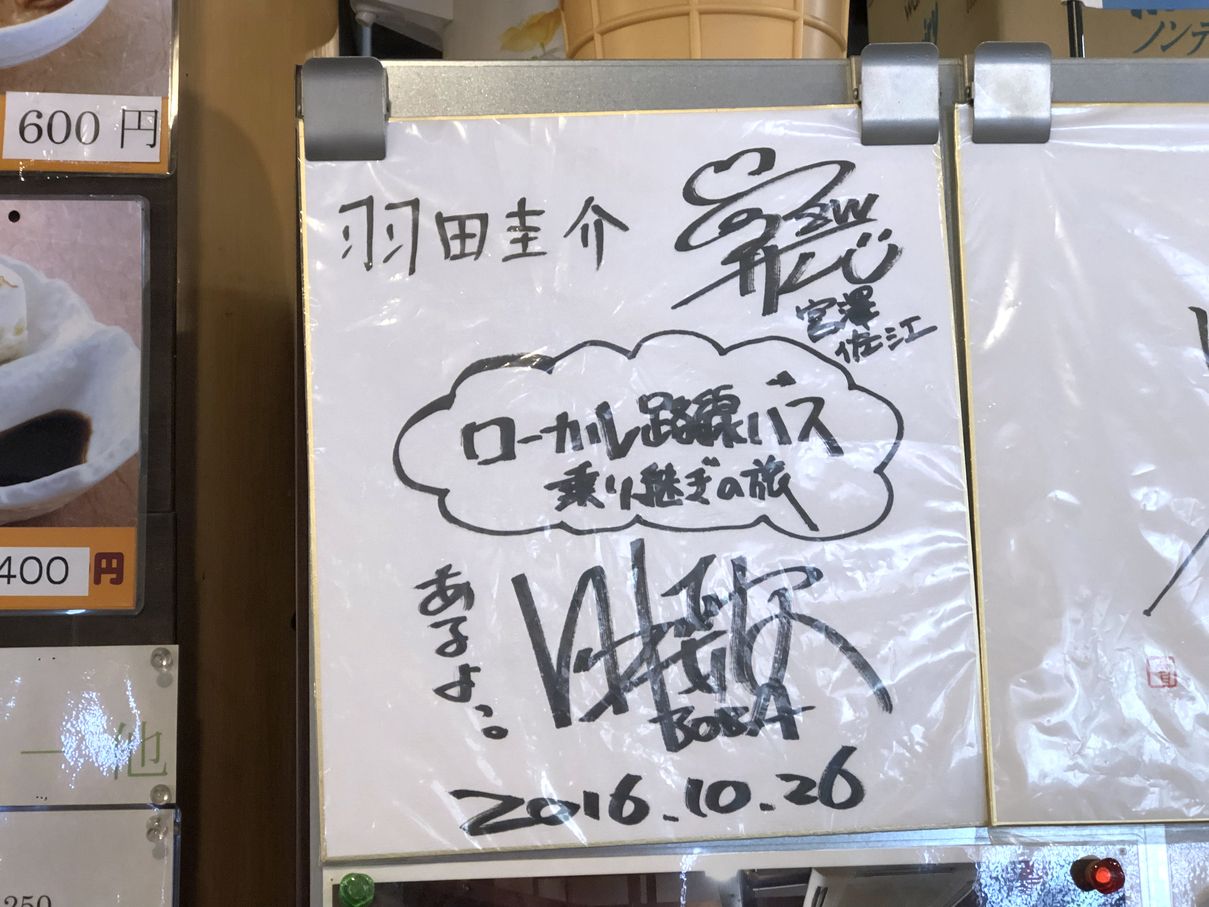 600円
400円
一 他
250
羽田圭介
SW
宮澤
佐江
ローカル路線バス
乗り継ぎの旅
あるよっ。
BOBA
2016.10.26
ノンデ